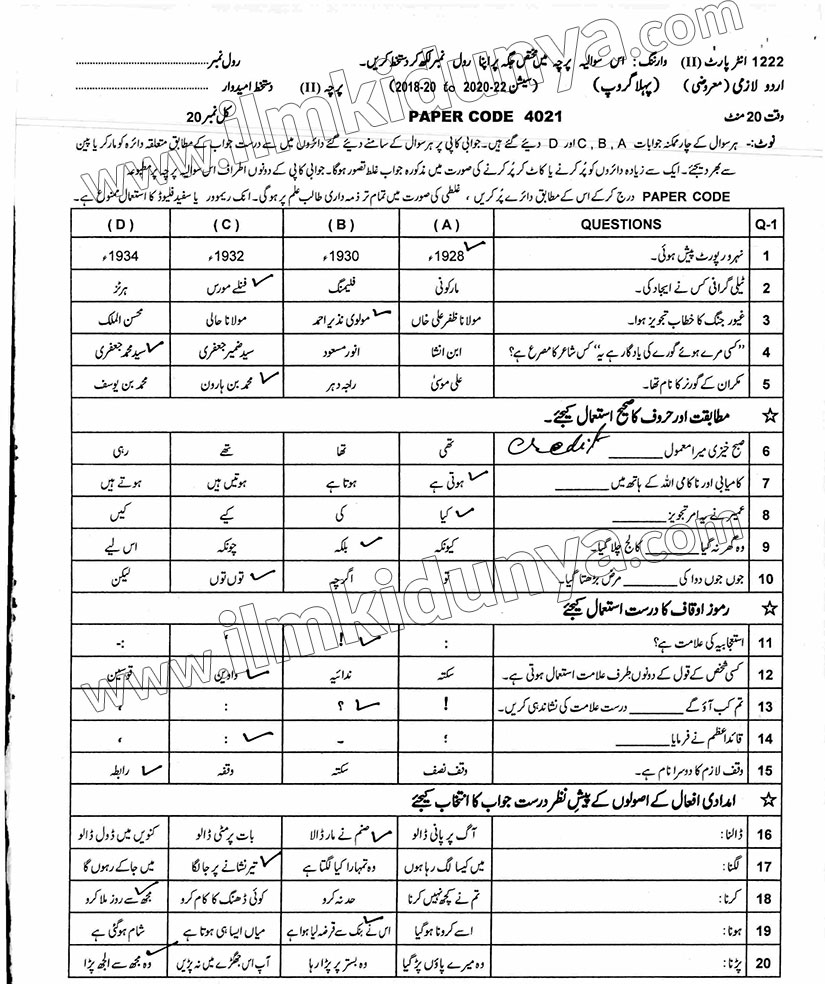 1222 انٹر پارٹ (II) وارننگ: اس سوالیہ پرچہ میں مختص جگہ پر اپنا رول نمبر لکھ کر دستخط کریں۔ رول نمبر
اردو لازمی (معروضی) (پہلا گروپ) (سیشن 22-2020 to 20-2018) پرچہ (II) دستخط امیدوار
وقت 20 منٹ PAPER CODE 4021 کل نمبر 20
نوٹ:- ہر سوال کے چار ممکنہ جوابات C, B, A اور D دیئے گئے ہیں۔ جوابی کاپی پر ہر سوال کے سامنے دیئے گئے دائروں میں سے درست جواب کے مطابق متعلقہ دائرہ کو مارکر یا پین
سے بھر دیجئے۔ ایک سے زیادہ دائروں کو پُر کرنے یا کاٹ کر پُر کرنے کی صورت میں مذکورہ جواب غلط تصور ہوگا۔ جوابی کاپی کے دونوں اطراف اس سوالیہ پرچہ پر مطبوعہ
PAPER CODE درج کر کے اس کے مطابق دائرے پُر کریں، غلطی کی صورت میں تمام تر ذمہ داری طالب علم پر ہوگی۔ انک ریموور یا سفید فلیوڈ کا استعمال ممنوع ہے۔
Q-1 QUESTIONS (A) (B) (C) (D)
1 نہرو رپورٹ پیش ہوئی۔ 1928ء 1930ء 1932ء 1934ء
2 ٹیلی گرافی کس نے ایجاد کی۔ مارکونی فلیمنگ فنلے مورس ہرٹز
3 غیور جنگ کا خطاب تجویز ہوا۔ مولانا ظفر علی خاں مولوی نذیر احمد مولانا حالی محسن الملک
4 "کسی مرے ہوئے گورے کی یادگار ہے یہ" کس شاعر کا مصرع ہے؟ ابن انشا انور مسعود سید ضمیر جعفری سید محمد جعفری
5 مکران کے گورنر کا نام تھا۔ علی موسیٰ راجہ دہر محمد بن ہارون محمد بن یوسف
☆ مطابقت اور حروف کا صحیح استعمال کیجئے۔
6 صبح خیزی میرا معمول ________ Credit تھی تھا تھے رہی
7 کامیابی اور ناکامی اللہ کے ہاتھ میں ________ ہوتی ہے ہوتا ہے ہوتیں ہیں ہوتے ہیں
8 عمیر نے یہ امر تجویز ________ کیا کی کیے کیں
9 وہ گھر نہ گیا ________ کالج چلا گیا۔ کیونکہ بلکہ چونکہ اس لیے
10 جوں جوں دوا کی ________ مرض بڑھتا گیا۔ تو اگرچہ توں توں لیکن
☆ رموز اوقاف کا درست استعمال کیجئے
11 استعجابیہ کی علامت ہے؟ : ! ، :-
12 کسی شخص کے قول کے دونوں طرف علامت استعمال ہوتی ہے۔ سکتہ ندائیہ واوین قوسین
13 تم کب آؤ گے ________ درست علامت کی نشاندہی کریں۔ ! ؟ : ،
14 قائد اعظم نے فرمایا ________ ؛ ۔ : ،
15 وقف لازم کا دوسرا نام ہے۔ وقف نصف سکتہ وقفہ رابطہ
☆ امدادی افعال کے اصولوں کے پیش نظر درست جواب کا انتخاب کیجئے
16 ڈالنا: آگ پر پانی ڈالو صنم نے مار ڈالا بات پر مٹی ڈالو کنویں میں ڈول ڈالو
17 لگنا: میں کیسا لگ رہا ہوں وہ تمہارا کیا لگتا ہے تیر نشانے پر جا لگا میں جا کے رہوں گا
18 کرنا: تم نے کچھ نہیں کرنا حد نہ کرو کوئی ڈھنگ کا کام کرو مجھ سے روز ملا کرو
19 ہونا: اسے کرونا ہو گیا اس نے بنک سے قرضہ لیا ہوا ہے میاں ایسا ہی ہوتا ہے شام ہو گئی ہے
20 پڑنا: وہ میرے پاؤں پڑ گیا وہ بستر پر پڑا رہا آپ اس جھگڑے میں نہ پڑیں وہ مجھ سے الجھ پڑا
www.ilmkidunya.com
www.ilmkidunya.com